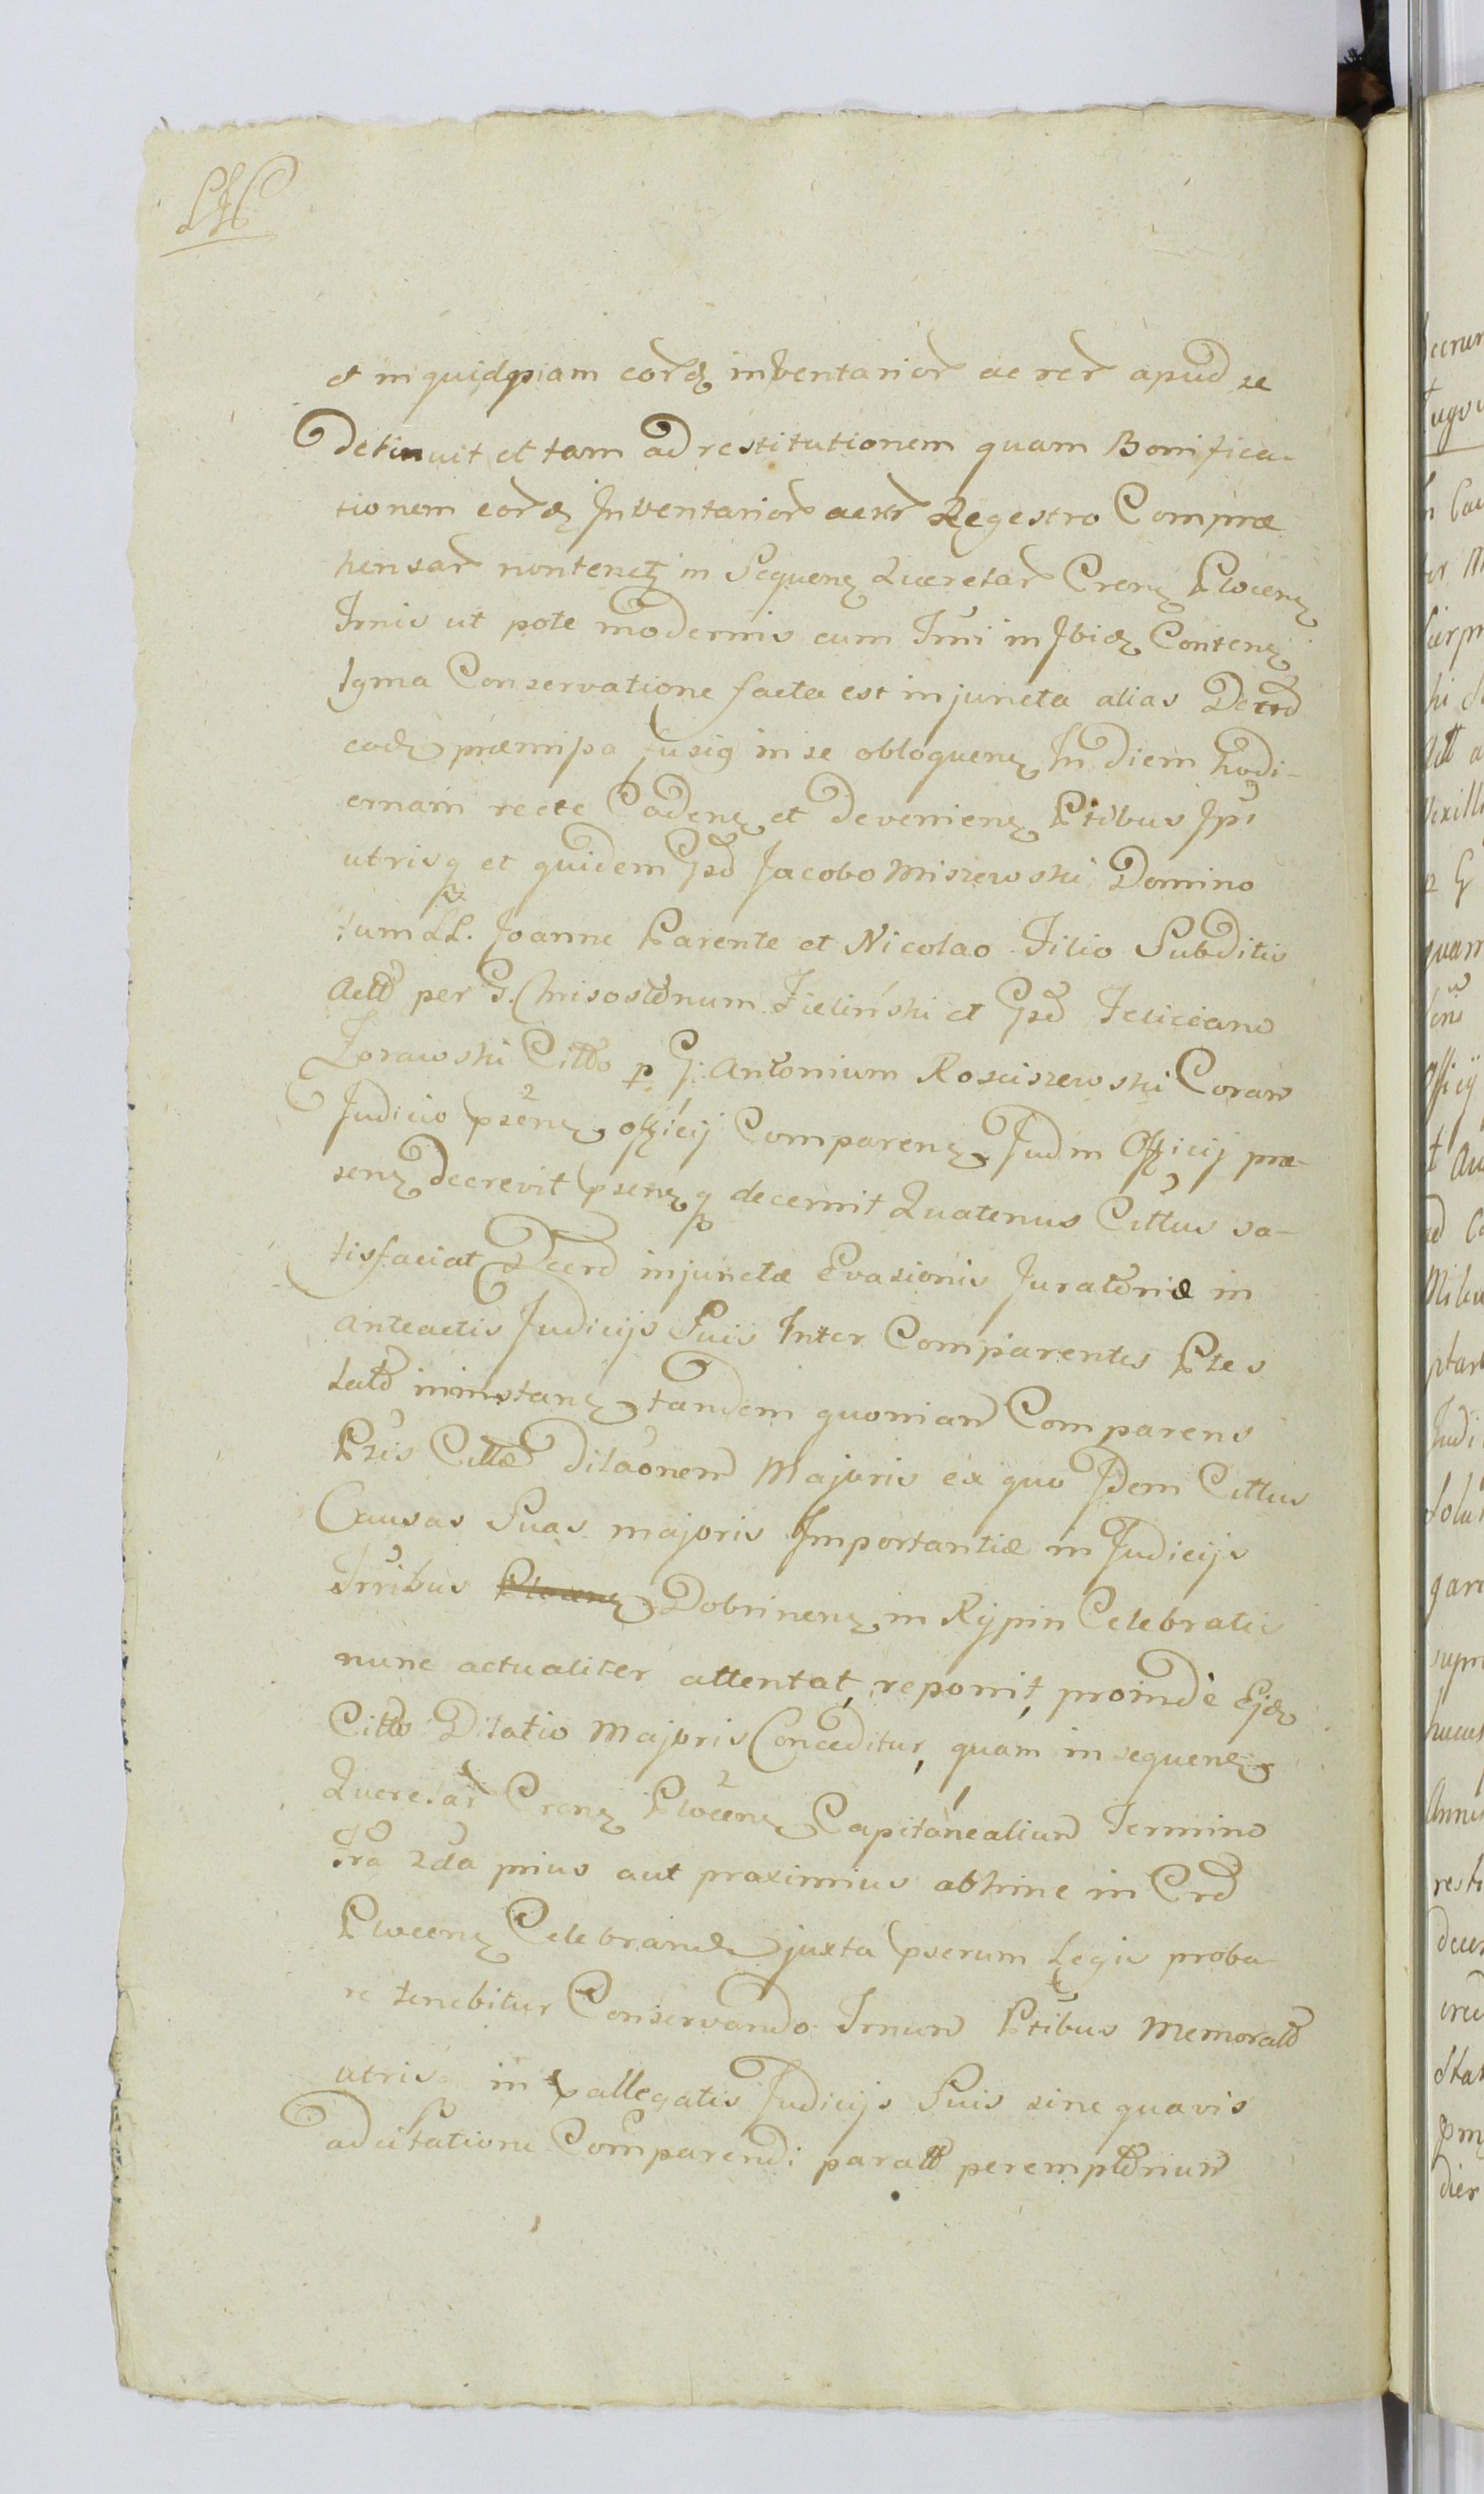 et in quidqpiam eord inventarior ac rer apud se
detinuit et tam ad restitutionem quam Bonifica-
tionem eord Inventarior ac rer Regestro Compræ
hensar non tenet in Sequen Queretar Cren Plocen
Trnis ut pote modernis cum Trni in Ibid Conten
Conservatione facta est injuncta alias Decrd
eod præmissa fusiq in se obloquen In diem hodi-
ernam recte Caden et devenien Ptibus Ipsi
utrisq et quidem Gsd Jacobo Miszewski Domino
tum LL. Joanne Parente et Nicolao Filio Subditis
Actto per G. Chrisostomum Zieliński et Gsd Feliciano
Zorawski Citto p G: Antonium Rosciszewski Coram
Judicio psen officij Comparen Judm Officij præ-
sen decrevit psenq decernit Quatenus Cittus sa-
tisfaciat Decrd injunctæ Evasionis Juratoriæ in
anteactis Judicijs Suis Inter Comparentes Ptes
lato in instan tandem quoniam Comparens
Ptis Cittæ dilaonem Majoris ex quo Idem Cittus
Causas Suas majoris Importantiæ in Judicijs
Trribus Plocen Dobrinen in Rypin Celebratis
nunc actualiter attentat, reponit, proinde Ejd
Citto Dilatio Majoris Conceditur, quam in sequen
Queretar Cren Plocen Capitanealium Termino
Tra 2da prius aut proximius abhinc in Crd
Plocen Celebrand juxta pserum Legis proba-
re tenebitur Conservando Trnum Ptibus Memorato
utrisq in pallegatis Judicijs Suis sine quavis
adcitatione Comparendi paratto peremptorium